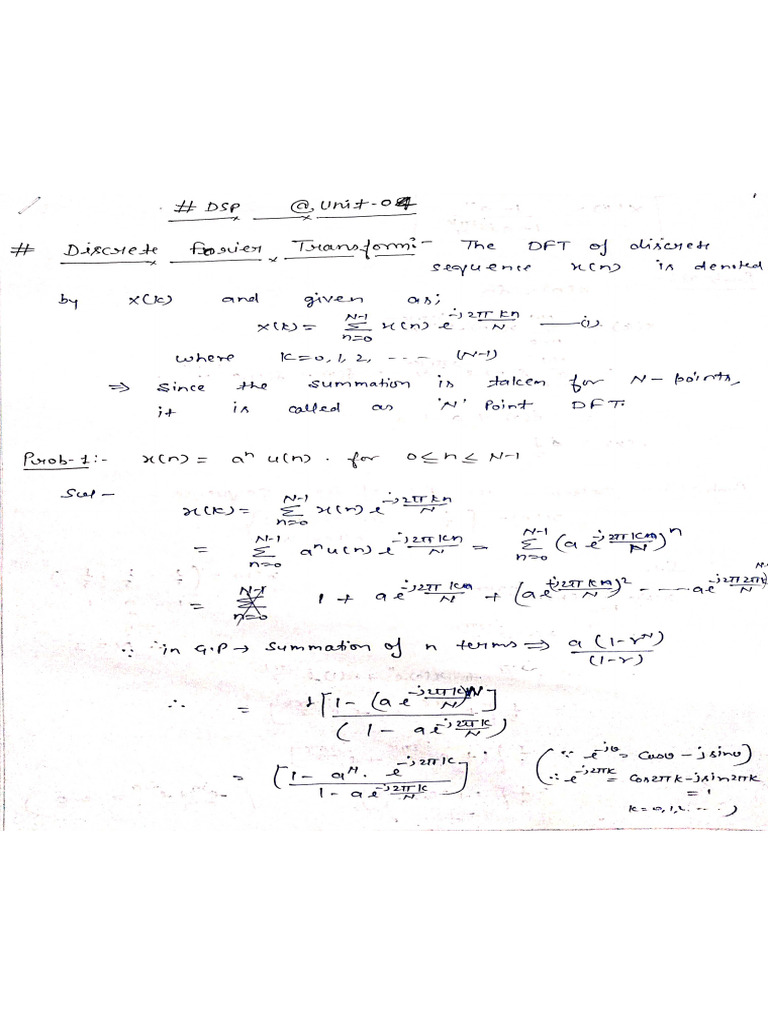 # DSP @ Unit-04
# Discrete Fourier Transform:- The DFT of discrete
sequence x(n) is denoted
by X(k) and given as;
X(k) = Σ_{n=0}^{N-1} x(n) e^{-j2πkn/N} —(i)
where K=0,1,2, --- (N-1)
⇒ Since the summation is taken for N-points,
it is called as 'N' Point DFT.
Prob-1:- x(n) = aⁿ u(n). for 0≤n≤N-1
Sol-
x(k) = Σ_{n=0}^{N-1} x(n) e^{-j2πkn/N}
= Σ_{n=0}^{N-1} aⁿ u(n) e^{-j2πkn/N} = Σ_{n=0}^{N-1} (a e^{-j2πk/N})ⁿ
= 1 + a e^{-j2πk/N} + (a e^{-j2πk/N})² - ---
∵ in G.P → summation of n terms ⇒ a(1-r^N)/(1-r)
∴ = 1[1-(a e^{-j2πk/N})^N]/(1-a e^{-j2πk/N})
= [(1-a^N. e^{-j2πk})/(1-a e^{-j2πk/N})] (∵ e^{-jθ} = cosθ - jsinθ)
(∴ e^{-j2πk} = cos2πk - jsin2πk
= 1
K=0,1,2...,)